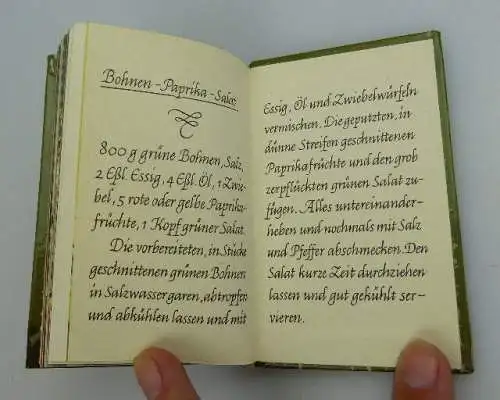 Bohnen-Paprika-Salat
800 g grüne Bohnen, Salz,
2 Eßl. Essig, 4 Eßl. Öl, 1 Zwie-
bel, 5 rote oder gelbe Paprika-
früchte, 1 Kopf grüner Salat.
Die vorbereiteten, in Stücke
geschnittenen grünen Bohnen
in Salzwasser garen, abtropfen
und abkühlen lassen und mit
Essig, Öl und Zwiebelwürfeln
vermischen. Die geputzten, in
dünne Streifen geschnittenen
Paprikafrüchte und den grob
zerpflückten grünen Salat zu-
fügen. Alles untereinander-
heben und nochmals mit Salz
und Pfeffer abschmecken. Den
Salat kurze Zeit durchziehen
lassen und gut gekühlt ser-
vieren.